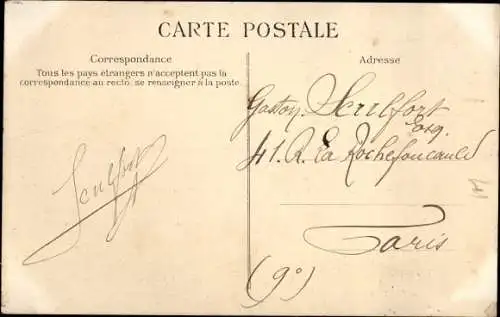 CARTE POSTALE
Correspondance
Tous les pays étrangers n'acceptent pas la
correspondance au recto, se renseigner à la poste.
Adresse
Gaston
Esq.
41. R. La Rochefoucauld
Paris
(9°)